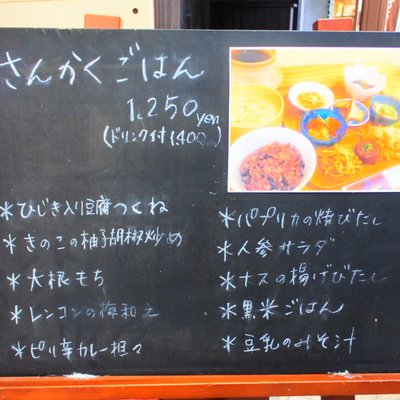 さんかくごはん
1,250yen
(ドリンク付1,400...)
*ひじき入り豆腐つくね
*きのこの柚子胡椒炒め
*大根もち
*レンコンの梅和え
*ピリ辛カレー担々
*パプリカの焼びたし
*人参サラダ
*ナスの揚げびたし
*黒米ごはん
*豆乳のみそ汁